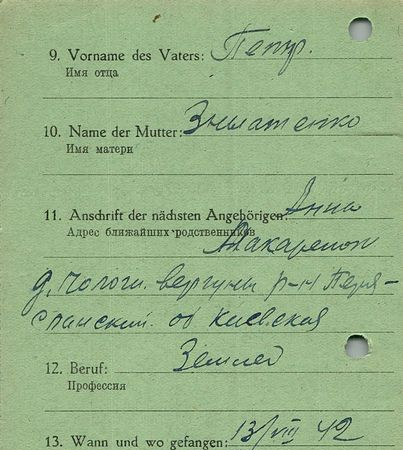 9. Vorname des Vaters: Петр.
Имя отца
10. Name der Mutter:
Имя матери
11. Anschrift der nächsten Angehörigen: Анна
Адрес ближайших родственников
р-н Переяславский об Киевская
12. Beruf:
Профессия
13. Wann und wo gefangen: 13/VIII 42